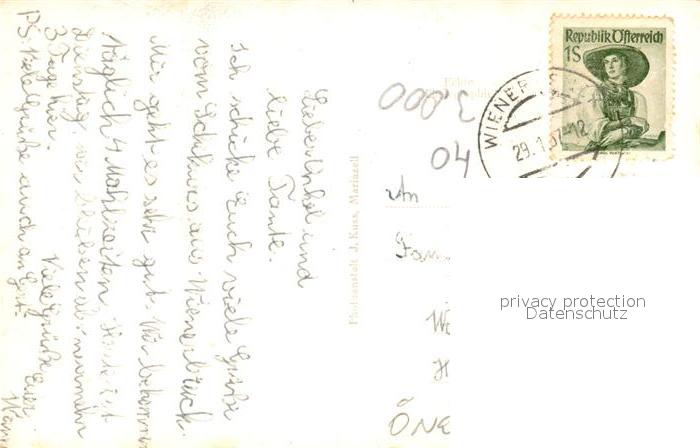 Lieber Onkel und
liebe Tante.
Ich schicke Euch viele Grüße
vom Schikurs aus Wienerbruck.
Mir geht es sehr gut. Wir bekommen
täglich 4 Mahlzeiten. Heute ist
Dienstag, wir bleiben also nur mehr
3 Tage hier.
Viele Grüße Euer
PS. Viele Grüße auch an Gert.
Photoanstalt J. Kuss, Mariazell
3.000
40
Republik Österreich
1S
WIENER
29.1.57-12
An
Fam
ÖNE
privacy protection
Datenschutz